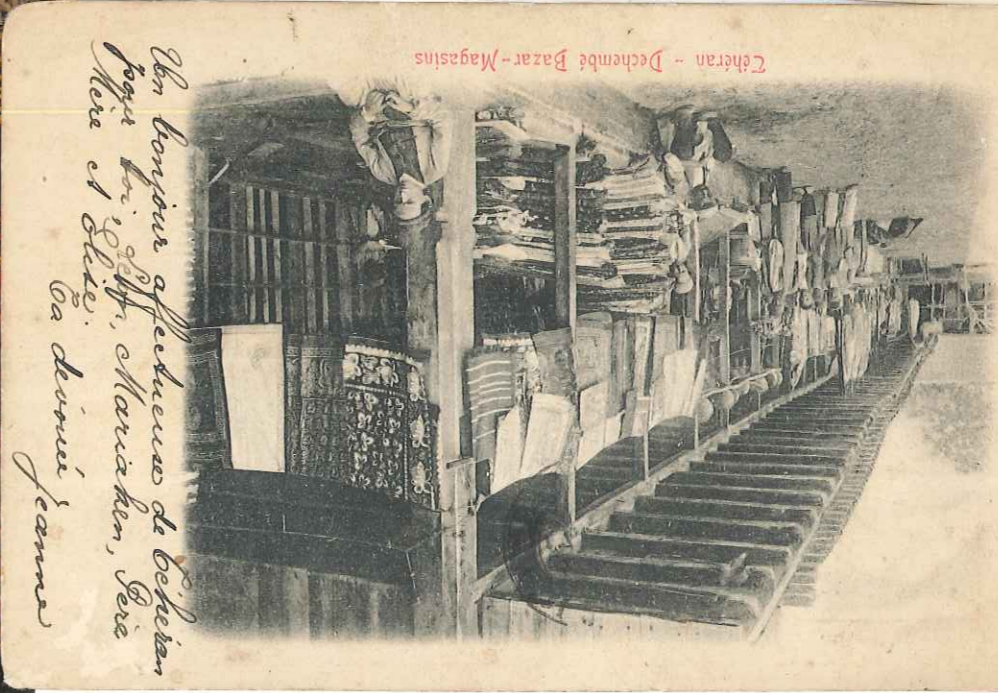 Téhéran - Dechembé Bazar-Magasins
Un bonjour affectueuse de Téhéran
pour toi, Leon, Mariahen, Père
Mère et Elise.
Ta devouée Jeanne